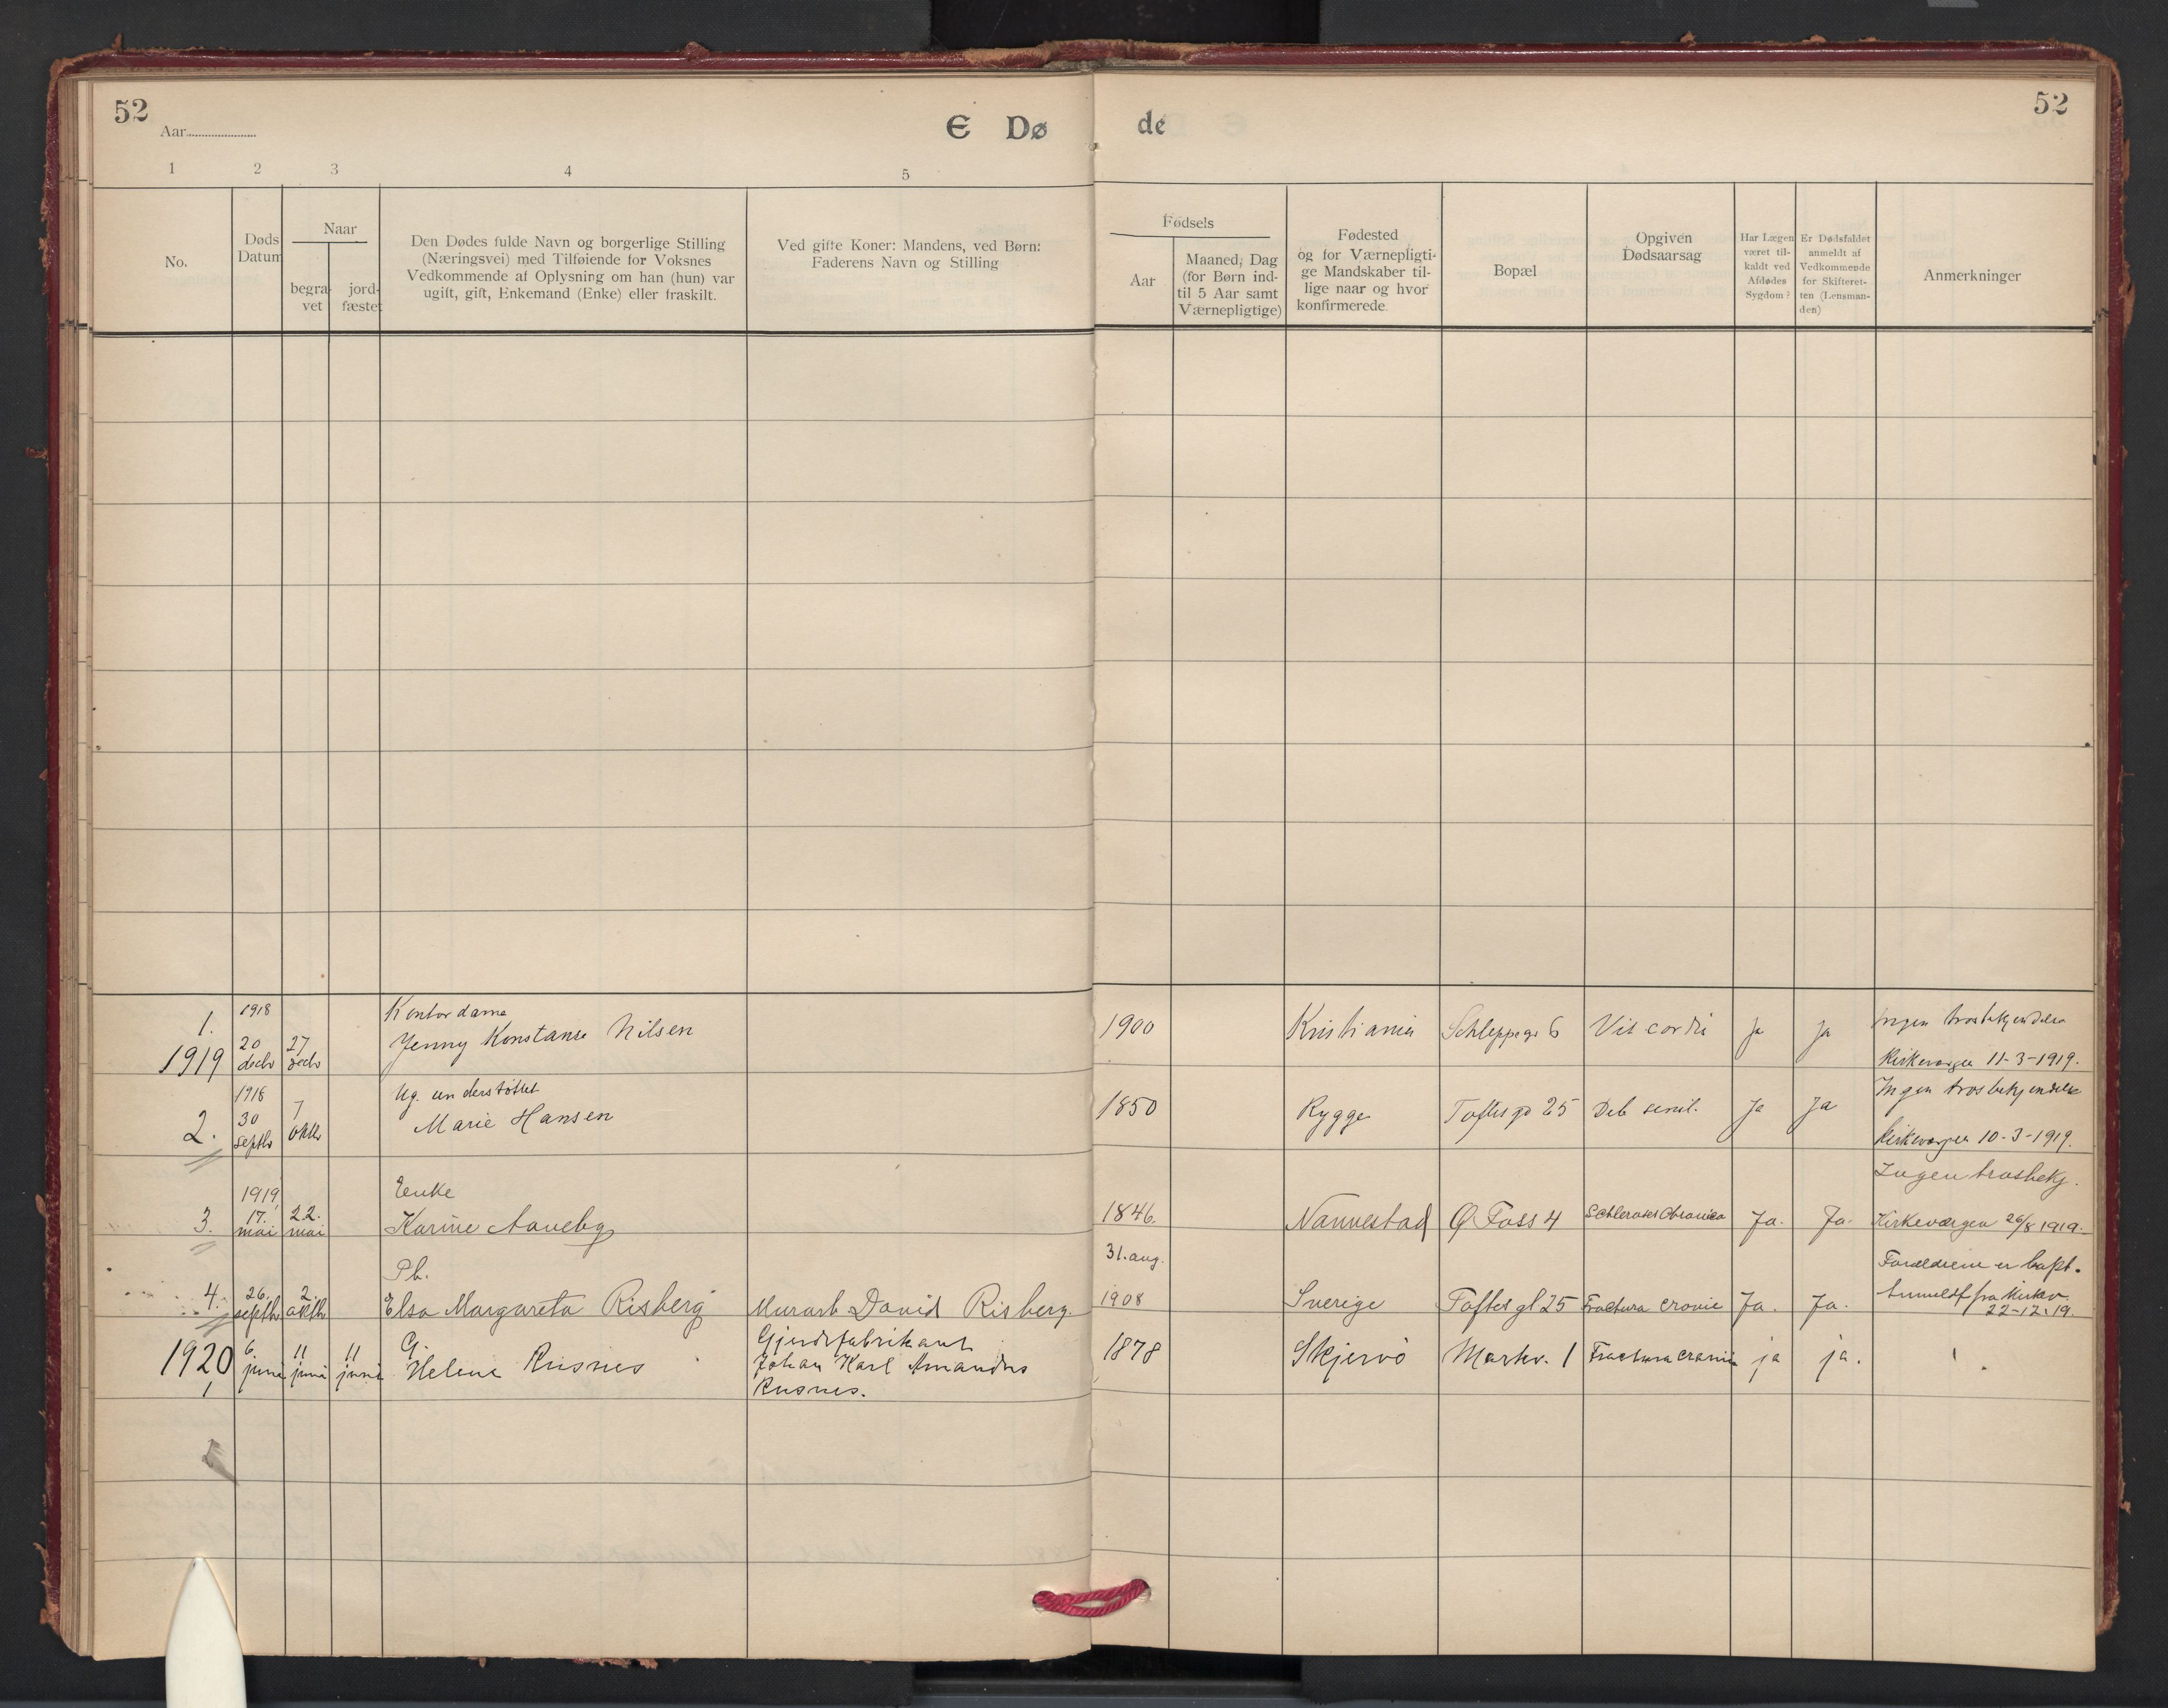 52
Aar
E Dø de
52
1 2 3 4 5
No.
Døds Datum
Naar
begravet
jordfæstet
Den Dødes fulde Navn og borgerlige Stilling
(Næringsvei) med Tilføiende for Voksnes
Vedkommende af Oplysning om han (hun) var
ugift, gift, Enkemand (Enke) eller fraskilt.
Ved gifte Koner: Mandens, ved Børn:
Faderens Navn og Stilling
Fødsels
Aar
Maaned, Dag
(for Børn ind-
til 5 Aar samt
Værnepligtige)
Fødested
og for Værnepligti-
ge Mandskaber til-
lige naar og hvor
konfirmerede.
Bopæl
Opgiven
Dødsaarsag
Har Lægen
været til-
kaldt ved
Afdødes
Sygdom?
Er Dødsfaldet
anmeldt af
Vedkommende
for Skifteret-
ten (Lensman-
den)
Anmerkninger
1. 1918 Kontordame Ingen trosbekjendelse
1919 20 decbr 27 decbr Jenny Konstanse Nilsen 1900 Kristiania Schleppegr 6 Vit cordis ja ja Kirkevergen 11-3-1919.
1918 Ug. understöttet Ingen trosbekjendelse
2. 30 septbr 7 oktbr Marie Hansen 1850 Rygge Toftesgt 25 Deb senil. Ja Ja Kirkevergen 10-3-1919.
1919 Enke Ingen trosbekj.
3. 17. mai 22. mai Karine Aaneby 1846. Nannestad Ø Foss 4 Ja. Ja. Kirkeværgen 26/8 1919.
Pb. 31. aug. Forældrene er bapt.
4. 26. septbr 2. oktbr Elsa Margareta Risberg Murarb David Risberg. 1908 Sverige Toftes gt 25 Fractura cranie Ja. Ja. Anmeldt fra Kirkev. 22-12.19.
1920 G. Gjerdefabrikant
1 6. juni 11 juni 11 juni Helene Rusnes Johan Karl Amandus 1878 Skjervö Markv. 1 Fractura cranie ja ja.
Rusnes.